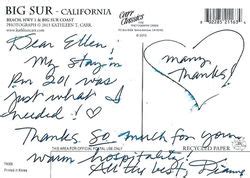 BIG SUR - CALIFORNIA
BEACH, HWY 1 & BIG SUR COAST
PHOTOGRAPH © 2015 KATHLEEN T. CARR
www.kathleencarr.com
Carr Classics
© 2015
Dear Ellen!
My stay in
Rm. 201 was
just what I
needed!
many
Thanks!
THIS AREA FOR OFFICIAL POSTAL USE ONLY
RECYCLED PAPER
Thanks so much for your
warm hospitality!
All the best, Diann
Printed in Korea